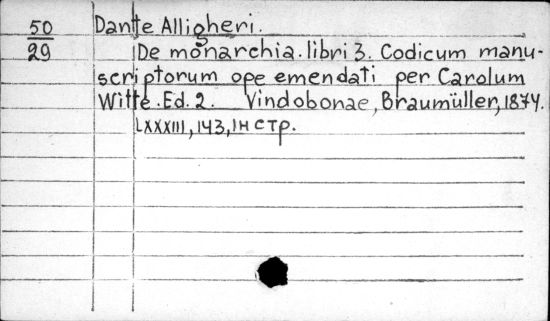 50 Dante Alligheri.
29 De monarchia. libri 3. Codicum manu-
scriptorum ope emendati per Carolum
Witte. Ed. 2. Vindobonae, Braumüller, 1874.
LXXXIII, 143, IH стр.